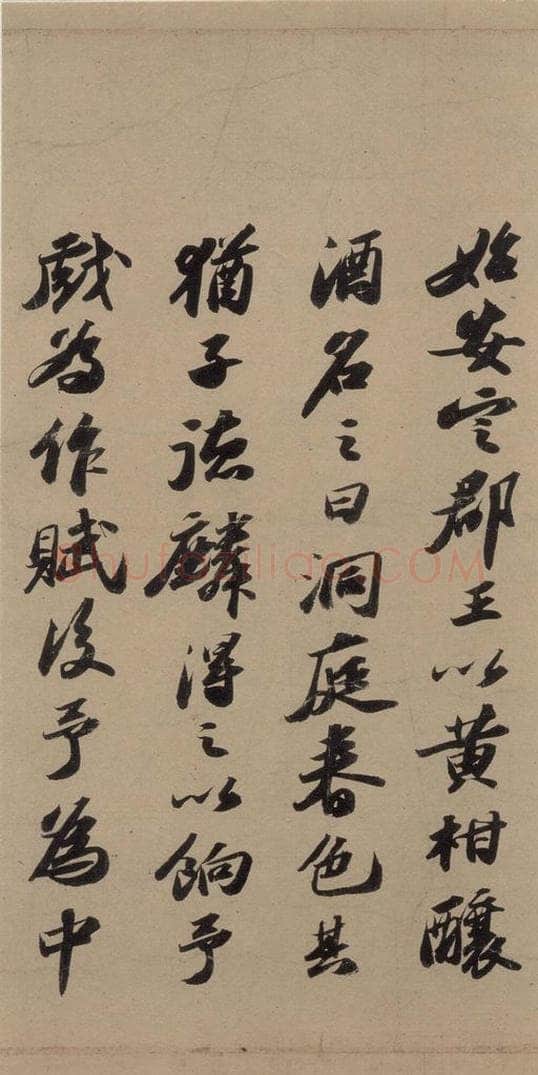 始安定郡王以黄柑釀
酒名之曰洞庭春色其
猶子德麟得之以餉予
戲為作賦後予為中
shufaziliao.COM